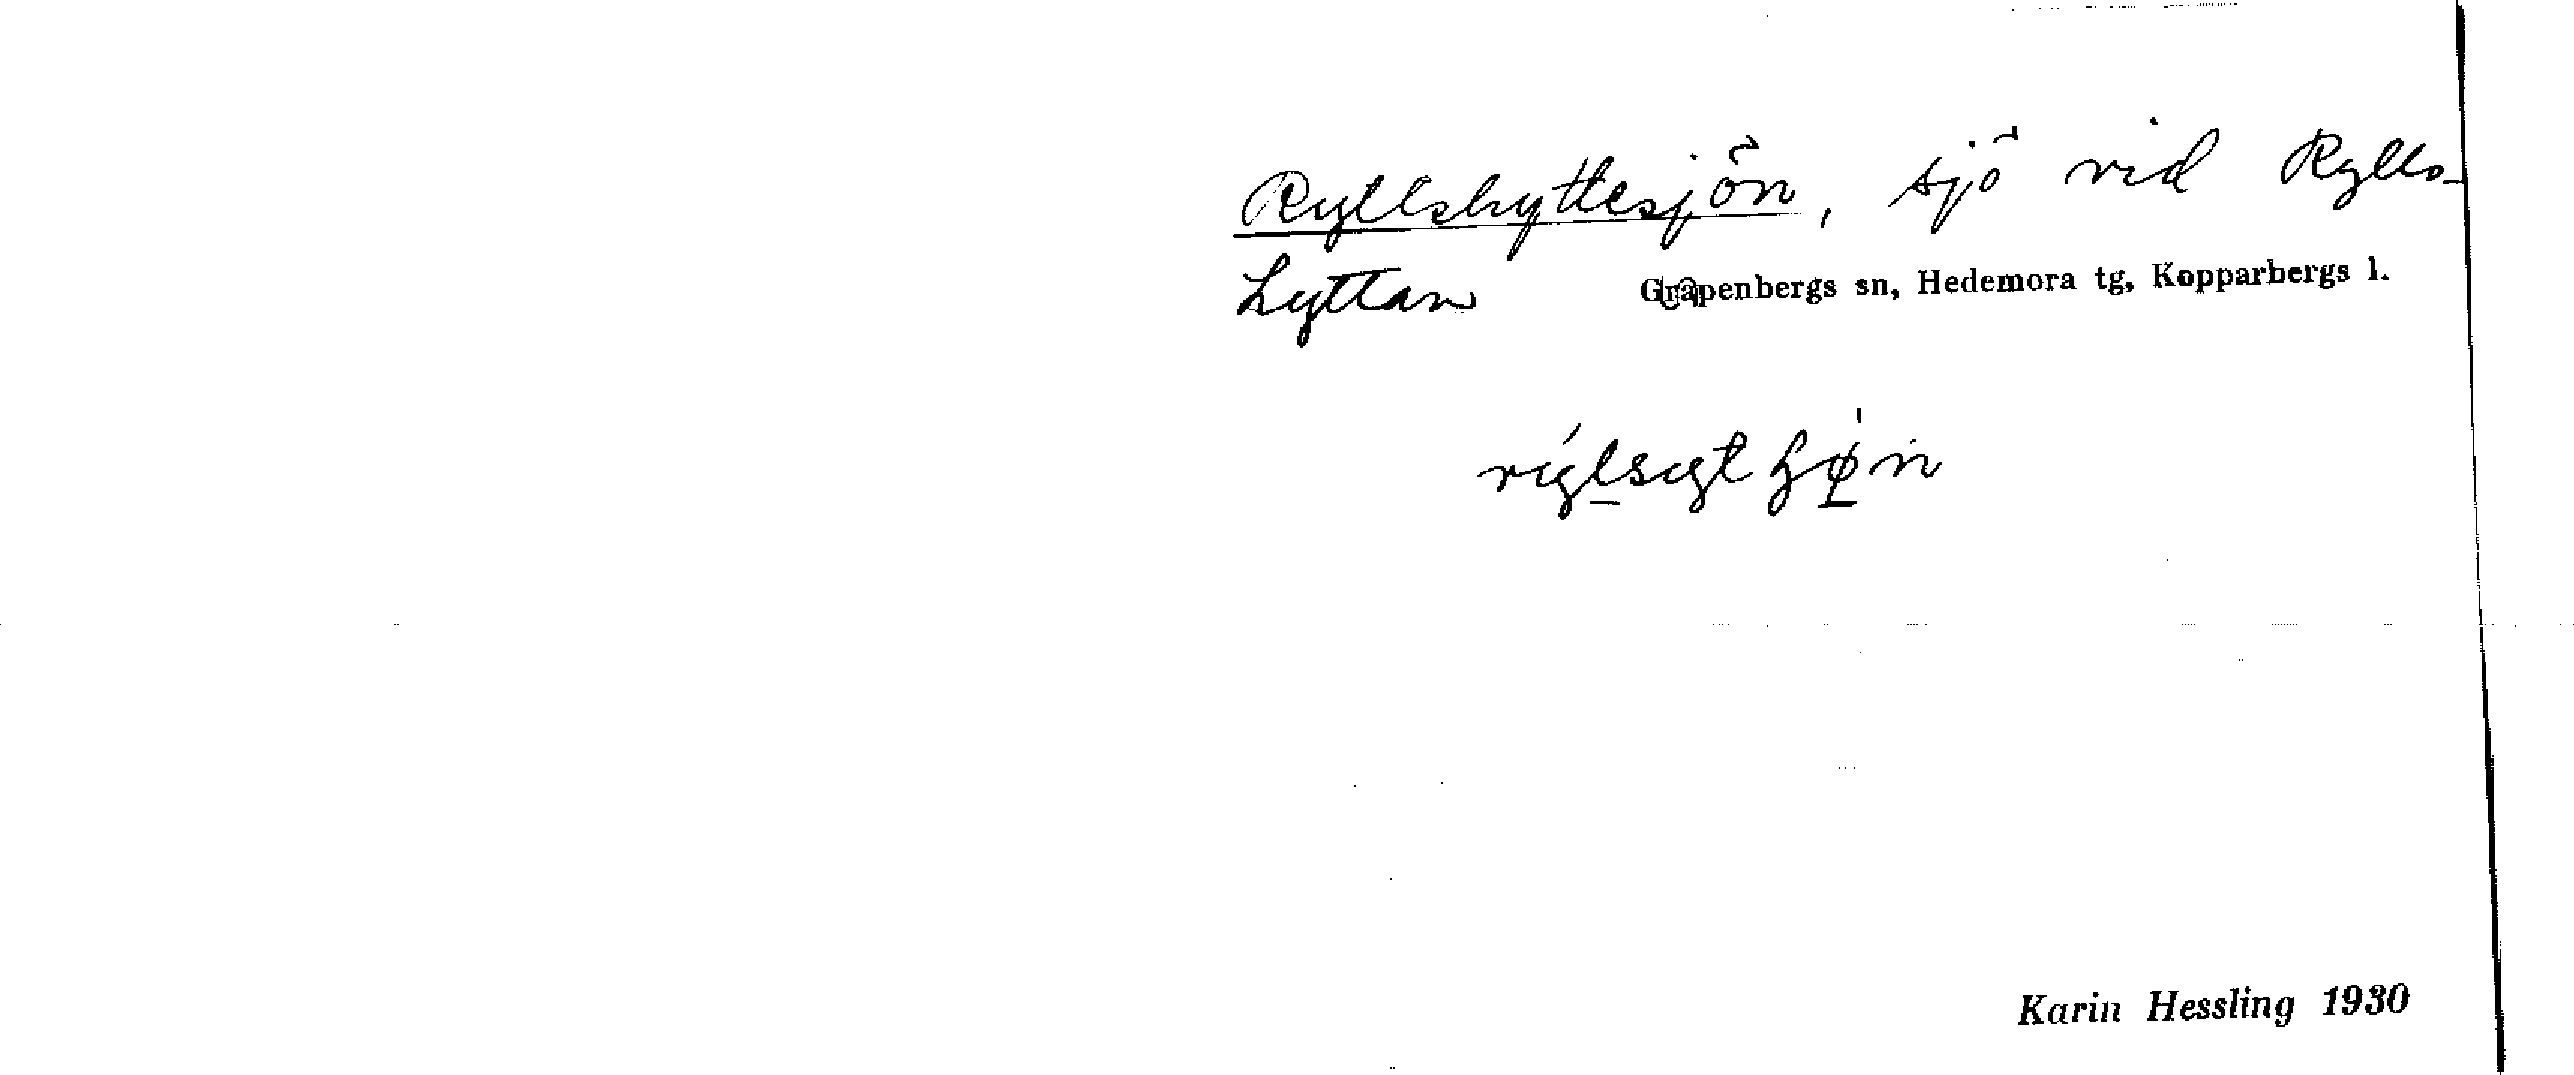 Ryllshyttesjön, sjö vid Rylls-
hyttan Grapenbergs sn, Hedemora tg, Kopparbergs l.
Karin Hessling 1930